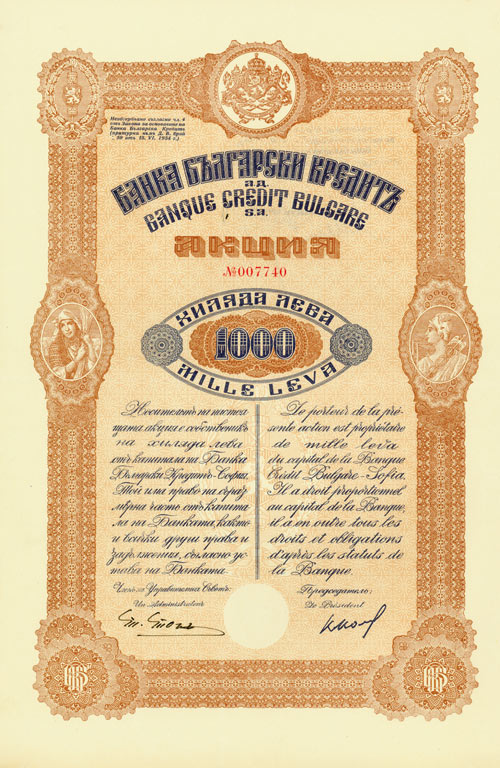 Необгербване съгласно чл. 4
отъ Закона за основаване на
Банка Български Кредитъ
(притурка къмъ Д. В. брой
59 отъ 15. VI. 1934 г.)
БАНКА БЪЛГАРСКИ КРЕДИТЪ
А.Д.
BANQUE CREDIT BULGARE
S.A.
АКЦИЯ
№007740
ХИЛЯДА ЛЕВА
1000
MILLE LEVA
Носительтъ на настоя-
щата акция е собственикъ
на хиляда лева
отъ капитала на Банка
Български Кредит-София.
Той има право на сораз-
мѣрна часть отъ капита-
ла на Банката, както
и всички други права и
задължения, съгласно ус-
тава на Банката.
Le porteur de la pré-
sente action est propriétaire
de mille leva
du capital de la Banque
Crédit Bulgare-Sofia.
Il a droit proportionnel
au capital de la Banque,
il a en outre tous les
droits et obligations
d'après les statuts de
la Banque.
Членъ на Управителния Съветъ:
Un Administrateur
Председатель:
Le Président